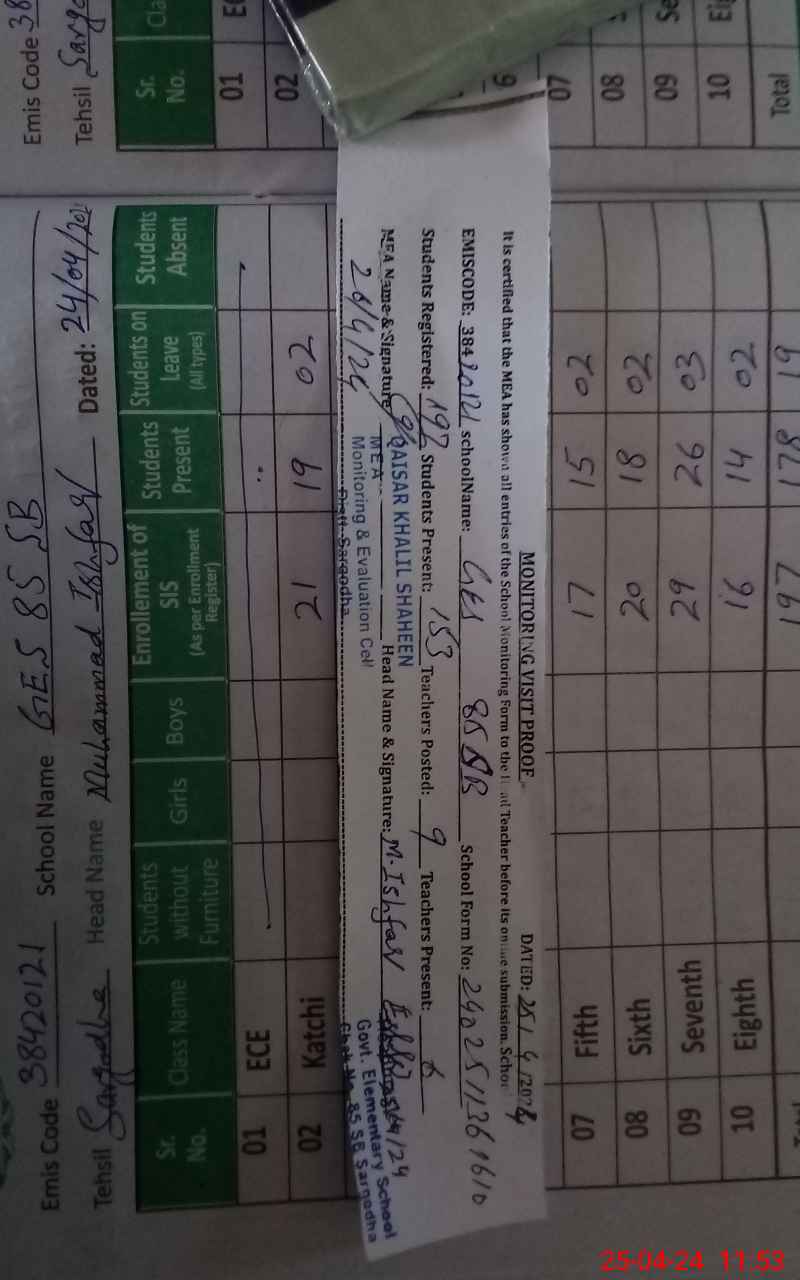 Emis Code 38420121 School Name GES 85 SB
Tehsil Sargodha Head Name Muhammad Ishfaq Dated: 24/04/202
Sr. No. Class Name Students without Furniture Girls Boys Enrollement of SIS (As per Enrollment Register) Students Present Students on Leave (All types) Students Absent
01 ECE
02 Katchi 21 19 02
07 Fifth 17 15 02
08 Sixth 20 18 02
09 Seventh 29 26 03
10 Eighth 16 14 02
Total 197 178 19
MONITORING VISIT PROOF DATED: 25/4/2024
It is certified that the MEA has shown all entries of the School Monitoring Form to the Head Teacher before its online submission. School
EMISCODE: 38420121 schoolName: GES 85 SB School Form No:
Students Registered: 197 Students Present: 153 Teachers Posted: 9 Teachers Present:
MEA Name & Signature Head Name & Signature: M. Ishfaq
QAISAR KHALIL SHAHEEN
MEA
Monitoring & Evaluation Cell
Distt. Sargodha
Govt. Elementary School
Chak No. 85 SB Sargodha
Emis Code 38
Tehsil Sargo
Sr. No. Cla
01 EC
02
07
08 S
09 Se
10 Eig
Total
25-04-24 11:53